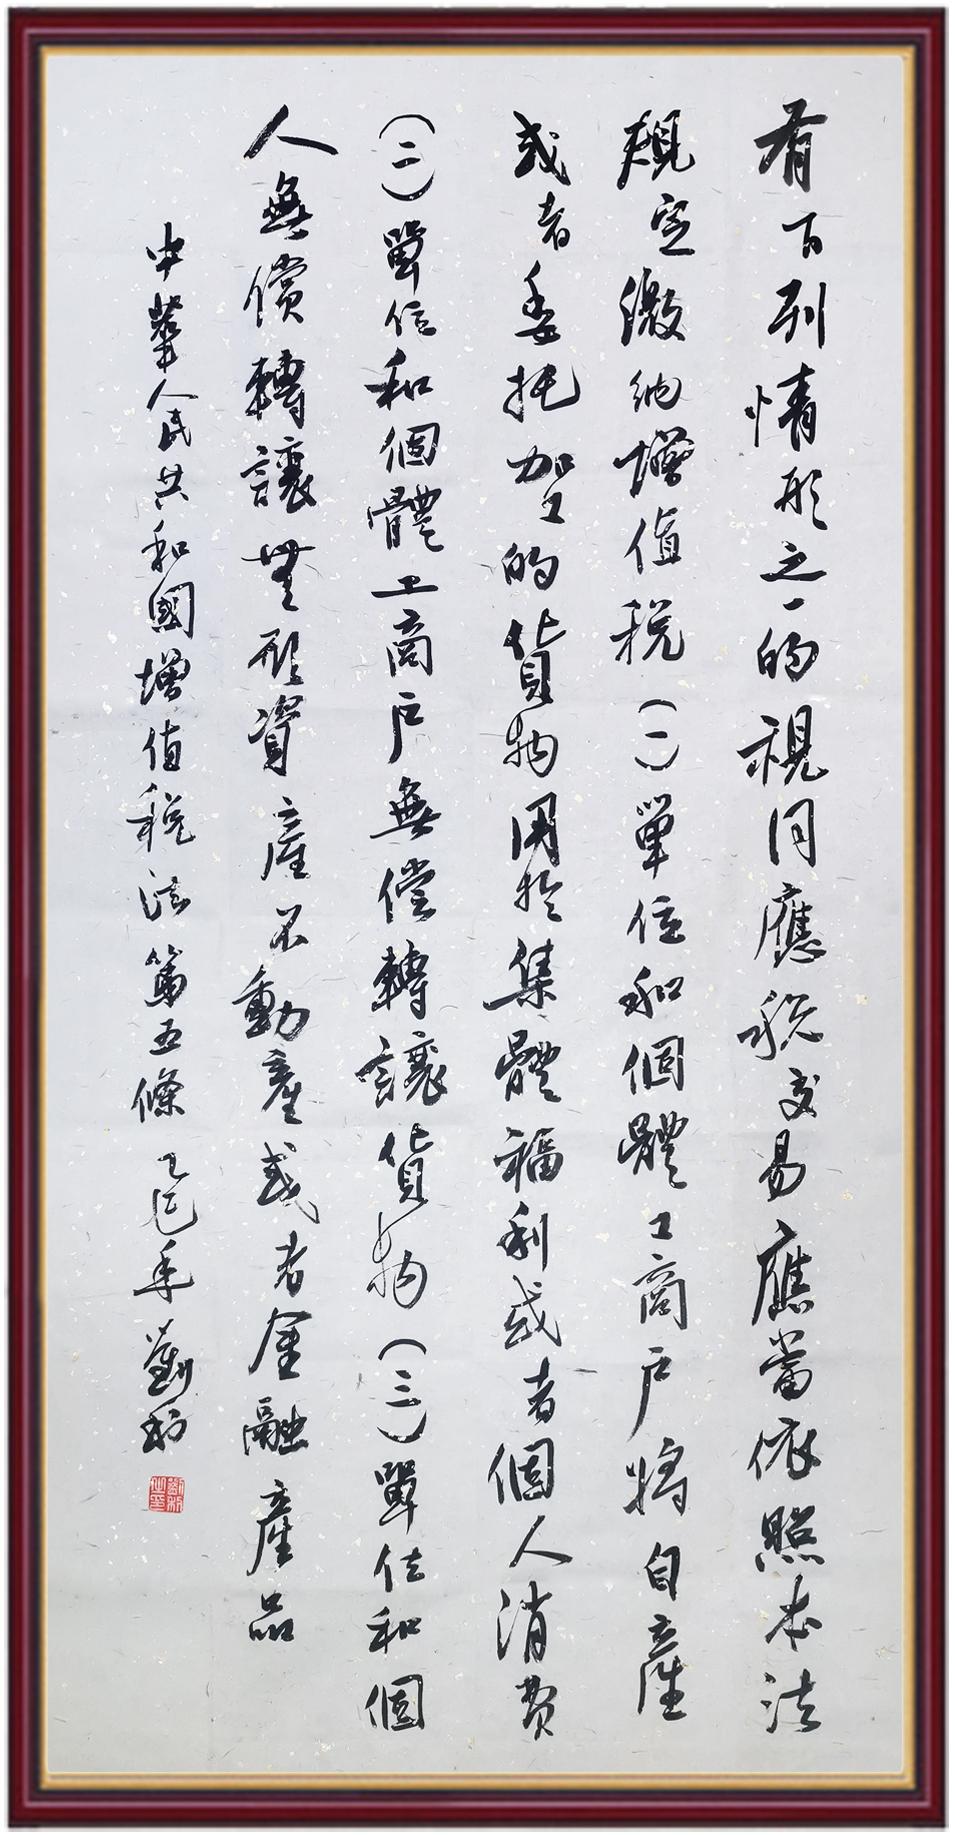 有下列情形之一的視同應税交易應當依照本法
規定繳納增值税（一）單位和個體工商户將自産
或者委托加工的貨物用於集體福利或者個人消費
（二）單位和個體工商户無償轉讓貨物（三）單位和個
人無償轉讓無形資産不動産或者金融産品
中華人民共和國增值税法第五條 乙巳年 劉